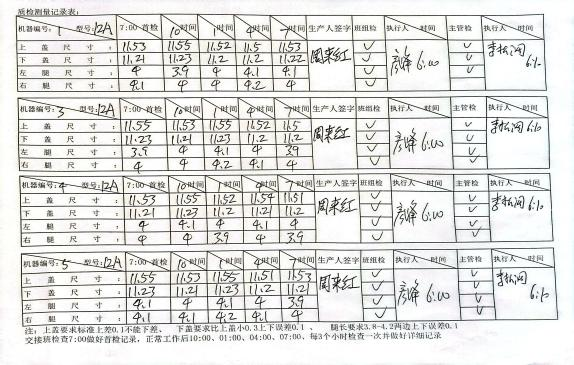 质检测量记录表:
机器编号: 1 型号:12A 7:00 首检 10时间 1时间 4时间 7时间 生产人签字 班组检 执行人 时间 主管检 执行人 时间
上盖尺寸: 11.53 11.55 11.52 11.5 11.53 周来红 ✓ 6:00 ✓ 6:10
下盖尺寸: 11.21 11.23 11.2 11.2 11.22 ✓ ✓
左腿尺寸: 4 3.9 4 4.1 4.1 ✓ ✓
右腿尺寸: 4 4 4.1 4.2 4 ✓ ✓
机器编号: 3 型号:12A 7:00 首检 10时间 1时间 4时间 7时间 生产人签字 班组检 执行人 时间 主管检 执行人 时间
上盖尺寸: 11.55 11.53 11.55 11.52 11.5 周来红 ✓ 6:00 ✓ 6:10
下盖尺寸: 11.23 11.21 11.23 11.2 11.2 ✓ ✓
左腿尺寸: 3.9 4 4.1 4 3.9 ✓ ✓
右腿尺寸: 4 4 4.2 4.1 4 ✓ ✓
机器编号: 4 型号:12A 7:00 首检 10时间 1时间 4时间 7时间 生产人签字 班组检 执行人 时间 主管检 执行人 时间
上盖尺寸: 11.53 11.55 11.52 11.54 11.51 周来红 ✓ 6:00 ✓ 6:10
下盖尺寸: 11.21 11.23 11.2 11.21 11.2 ✓ ✓
左腿尺寸: 4 4.1 4 4.1 4 ✓ ✓
右腿尺寸: 4 4 3.9 4 3.9 ✓ ✓
机器编号: 5 型号:12A 7:00 首检 10时间 1时间 4时间 7时间 生产人签字 班组检 执行人 时间 主管检 执行人 时间
上盖尺寸: 11.55 11.53 11.55 11.51 11.53 周来红 ✓ 6:00 ✓ 6:10
下盖尺寸: 11.23 11.21 11.23 11.2 11.23 ✓ ✓
左腿尺寸: 4.1 4 4.1 4 3.9 ✓ ✓
右腿尺寸: 4 4.1 4 4.2 4 ✓ ✓
注: 上盖要求标准上差0.1不能下差、 下盖要求比上盖小0.3上下误差0.1 、 腿长要求3.8-4.2两边上下误差0.1
交接班检查7:00做好首检记录，正常工作后10:00、01:00、04:00、07:00、每3个小时检查一次并做好详细记录